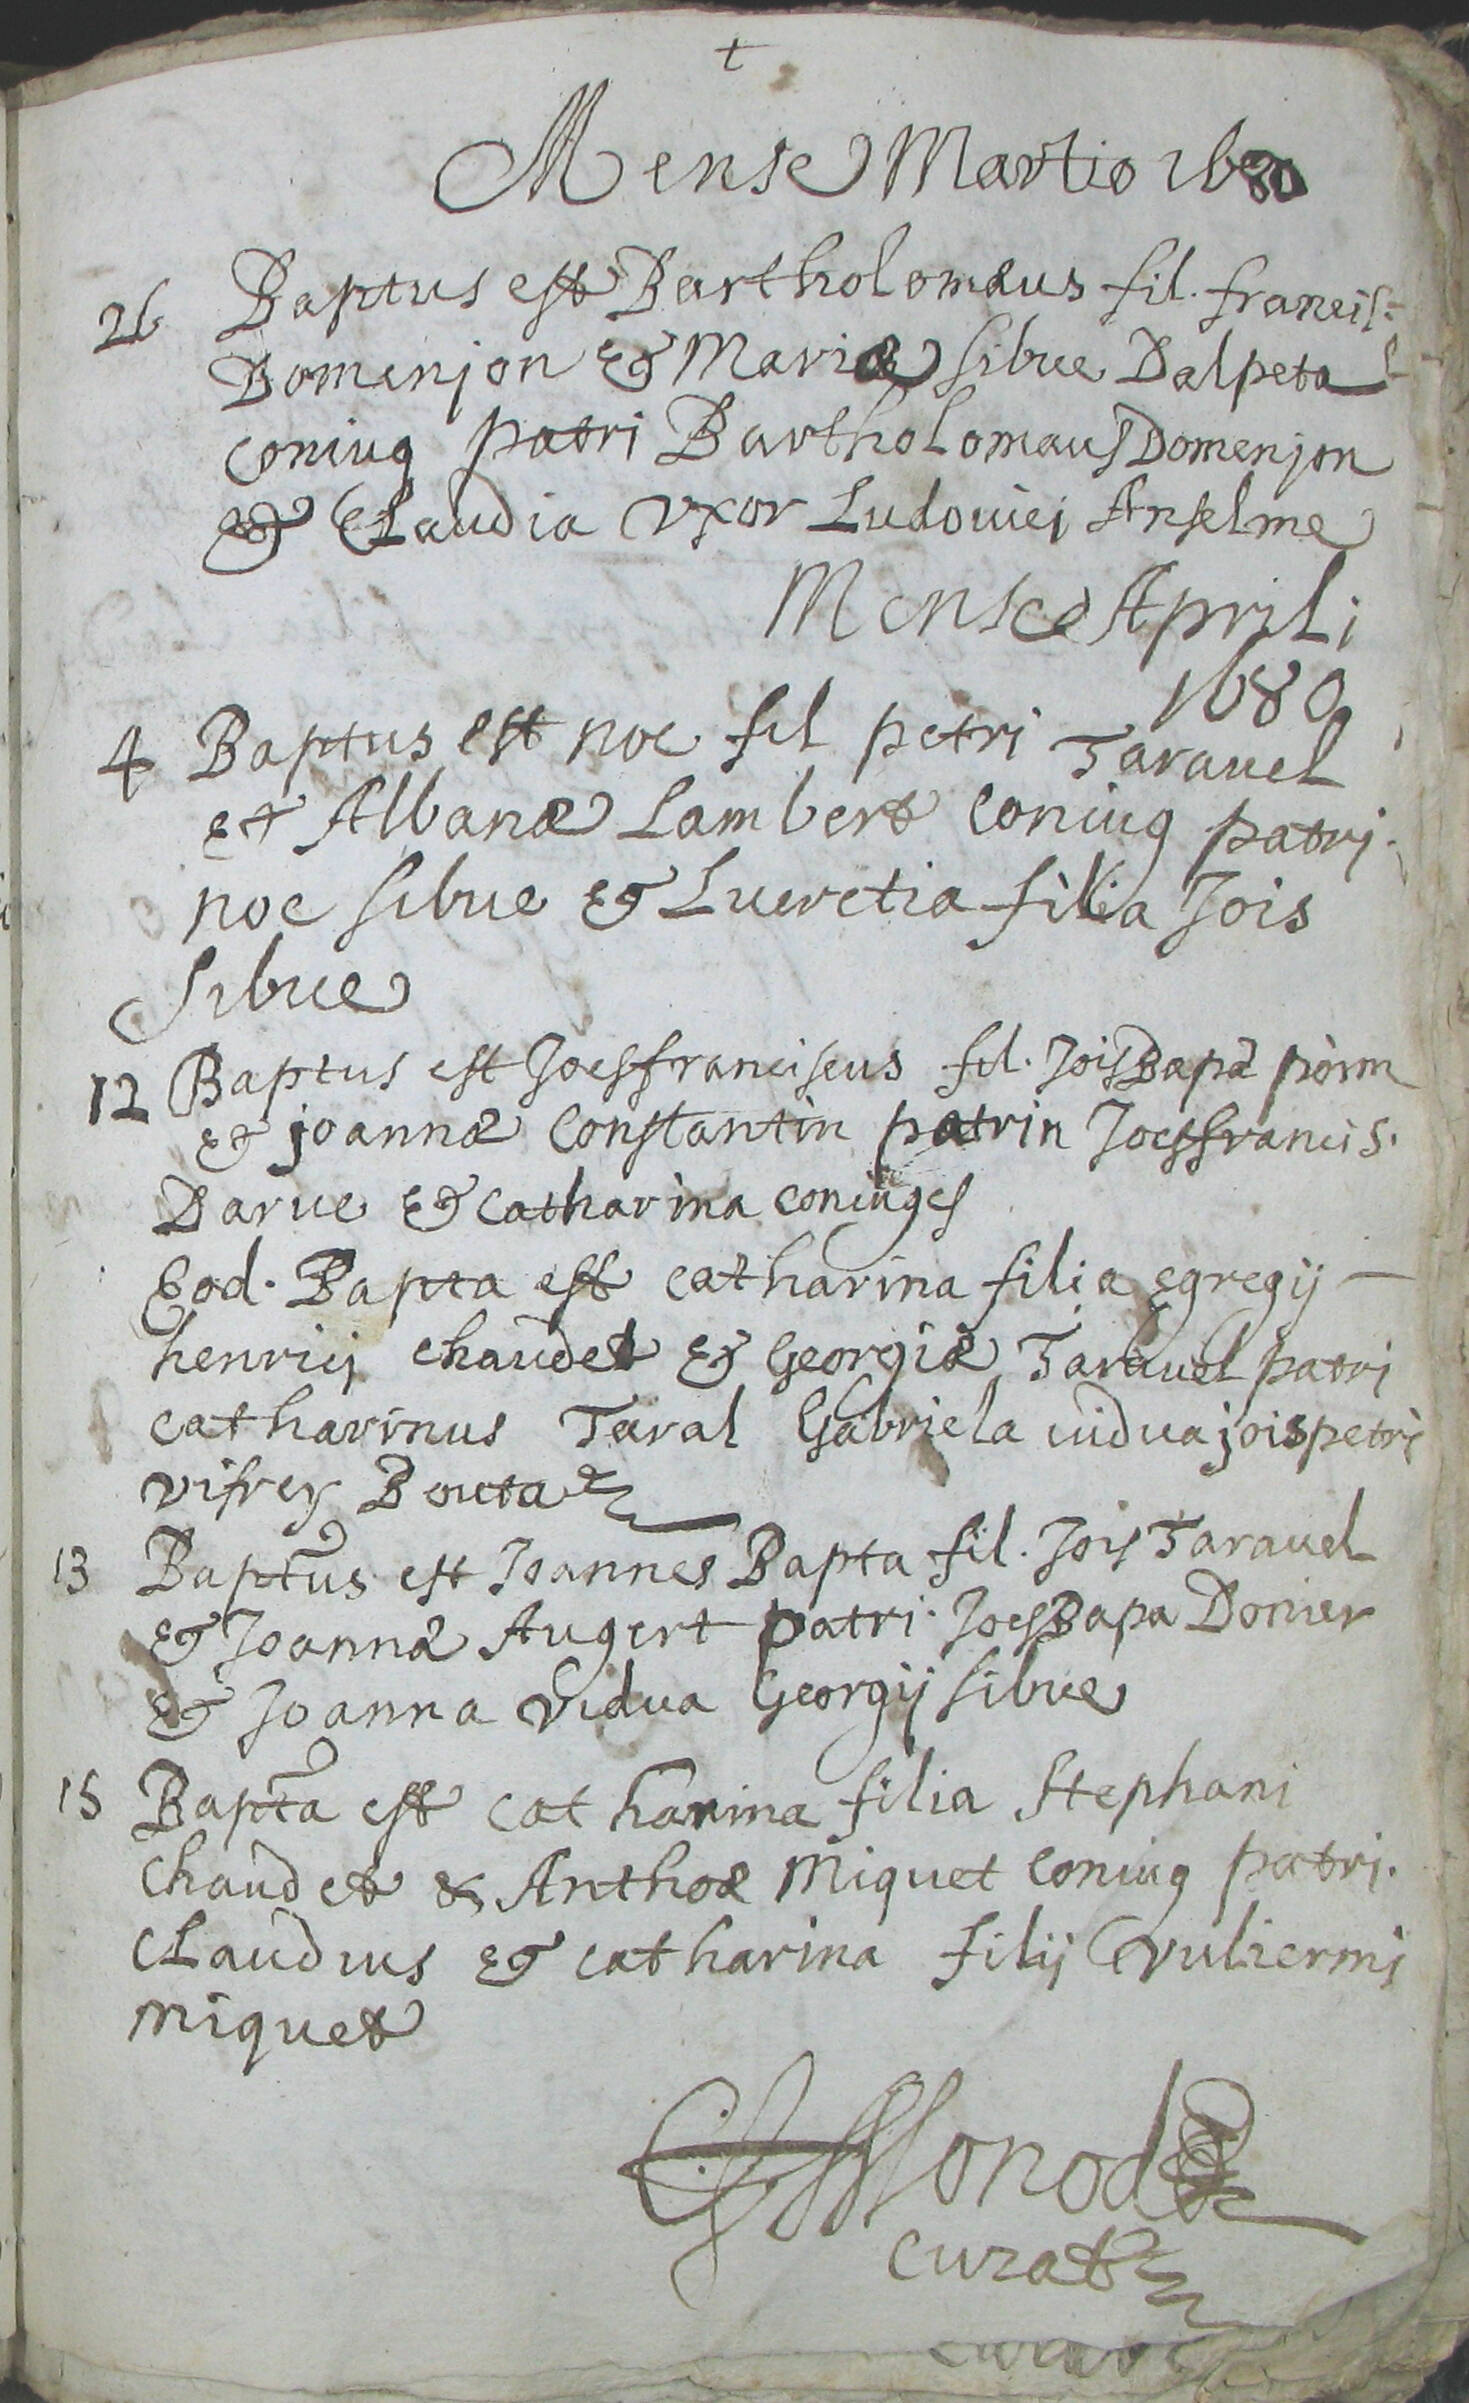 t
Mense Martio 1680
26 Baptus est Bartholomæus fil. francis:
Domenjon & Mariæ sibue Dalpeta
coniug patri Bartholomæus Domenjon
& Claudia vxor Ludouici Anselme
Mense Aprili
1680
4 Baptus est noe fil petri Tarauel
et Albanæ Lambert coniug patri.
noe sibue & Lucretia filia Jois
Sibue
12 Baptus est Joesfranciscus fil. Jois Bapa
& joannæ Constantin patrin Joesfrancis.
Darue & catharina coniuges
Eod. Bapta est catharina filia egregij
henrici chaudet & Georgiæ Tarauel patri
catharinus Taral Gabriela uidua jois petri
vifrey Bouta
13 Baptus est Joannes Bapta fil. Jois Tarauel
& Joannæ Augert patri. Joes Bapa Donier
& Joanna vidua Georgij sibue
15 Bapta est catharina filia Stephani
chaudet & Anthoæ Miquet coniug patri.
Claudius & catharina filij vuliermi
miquet
Monod
curat